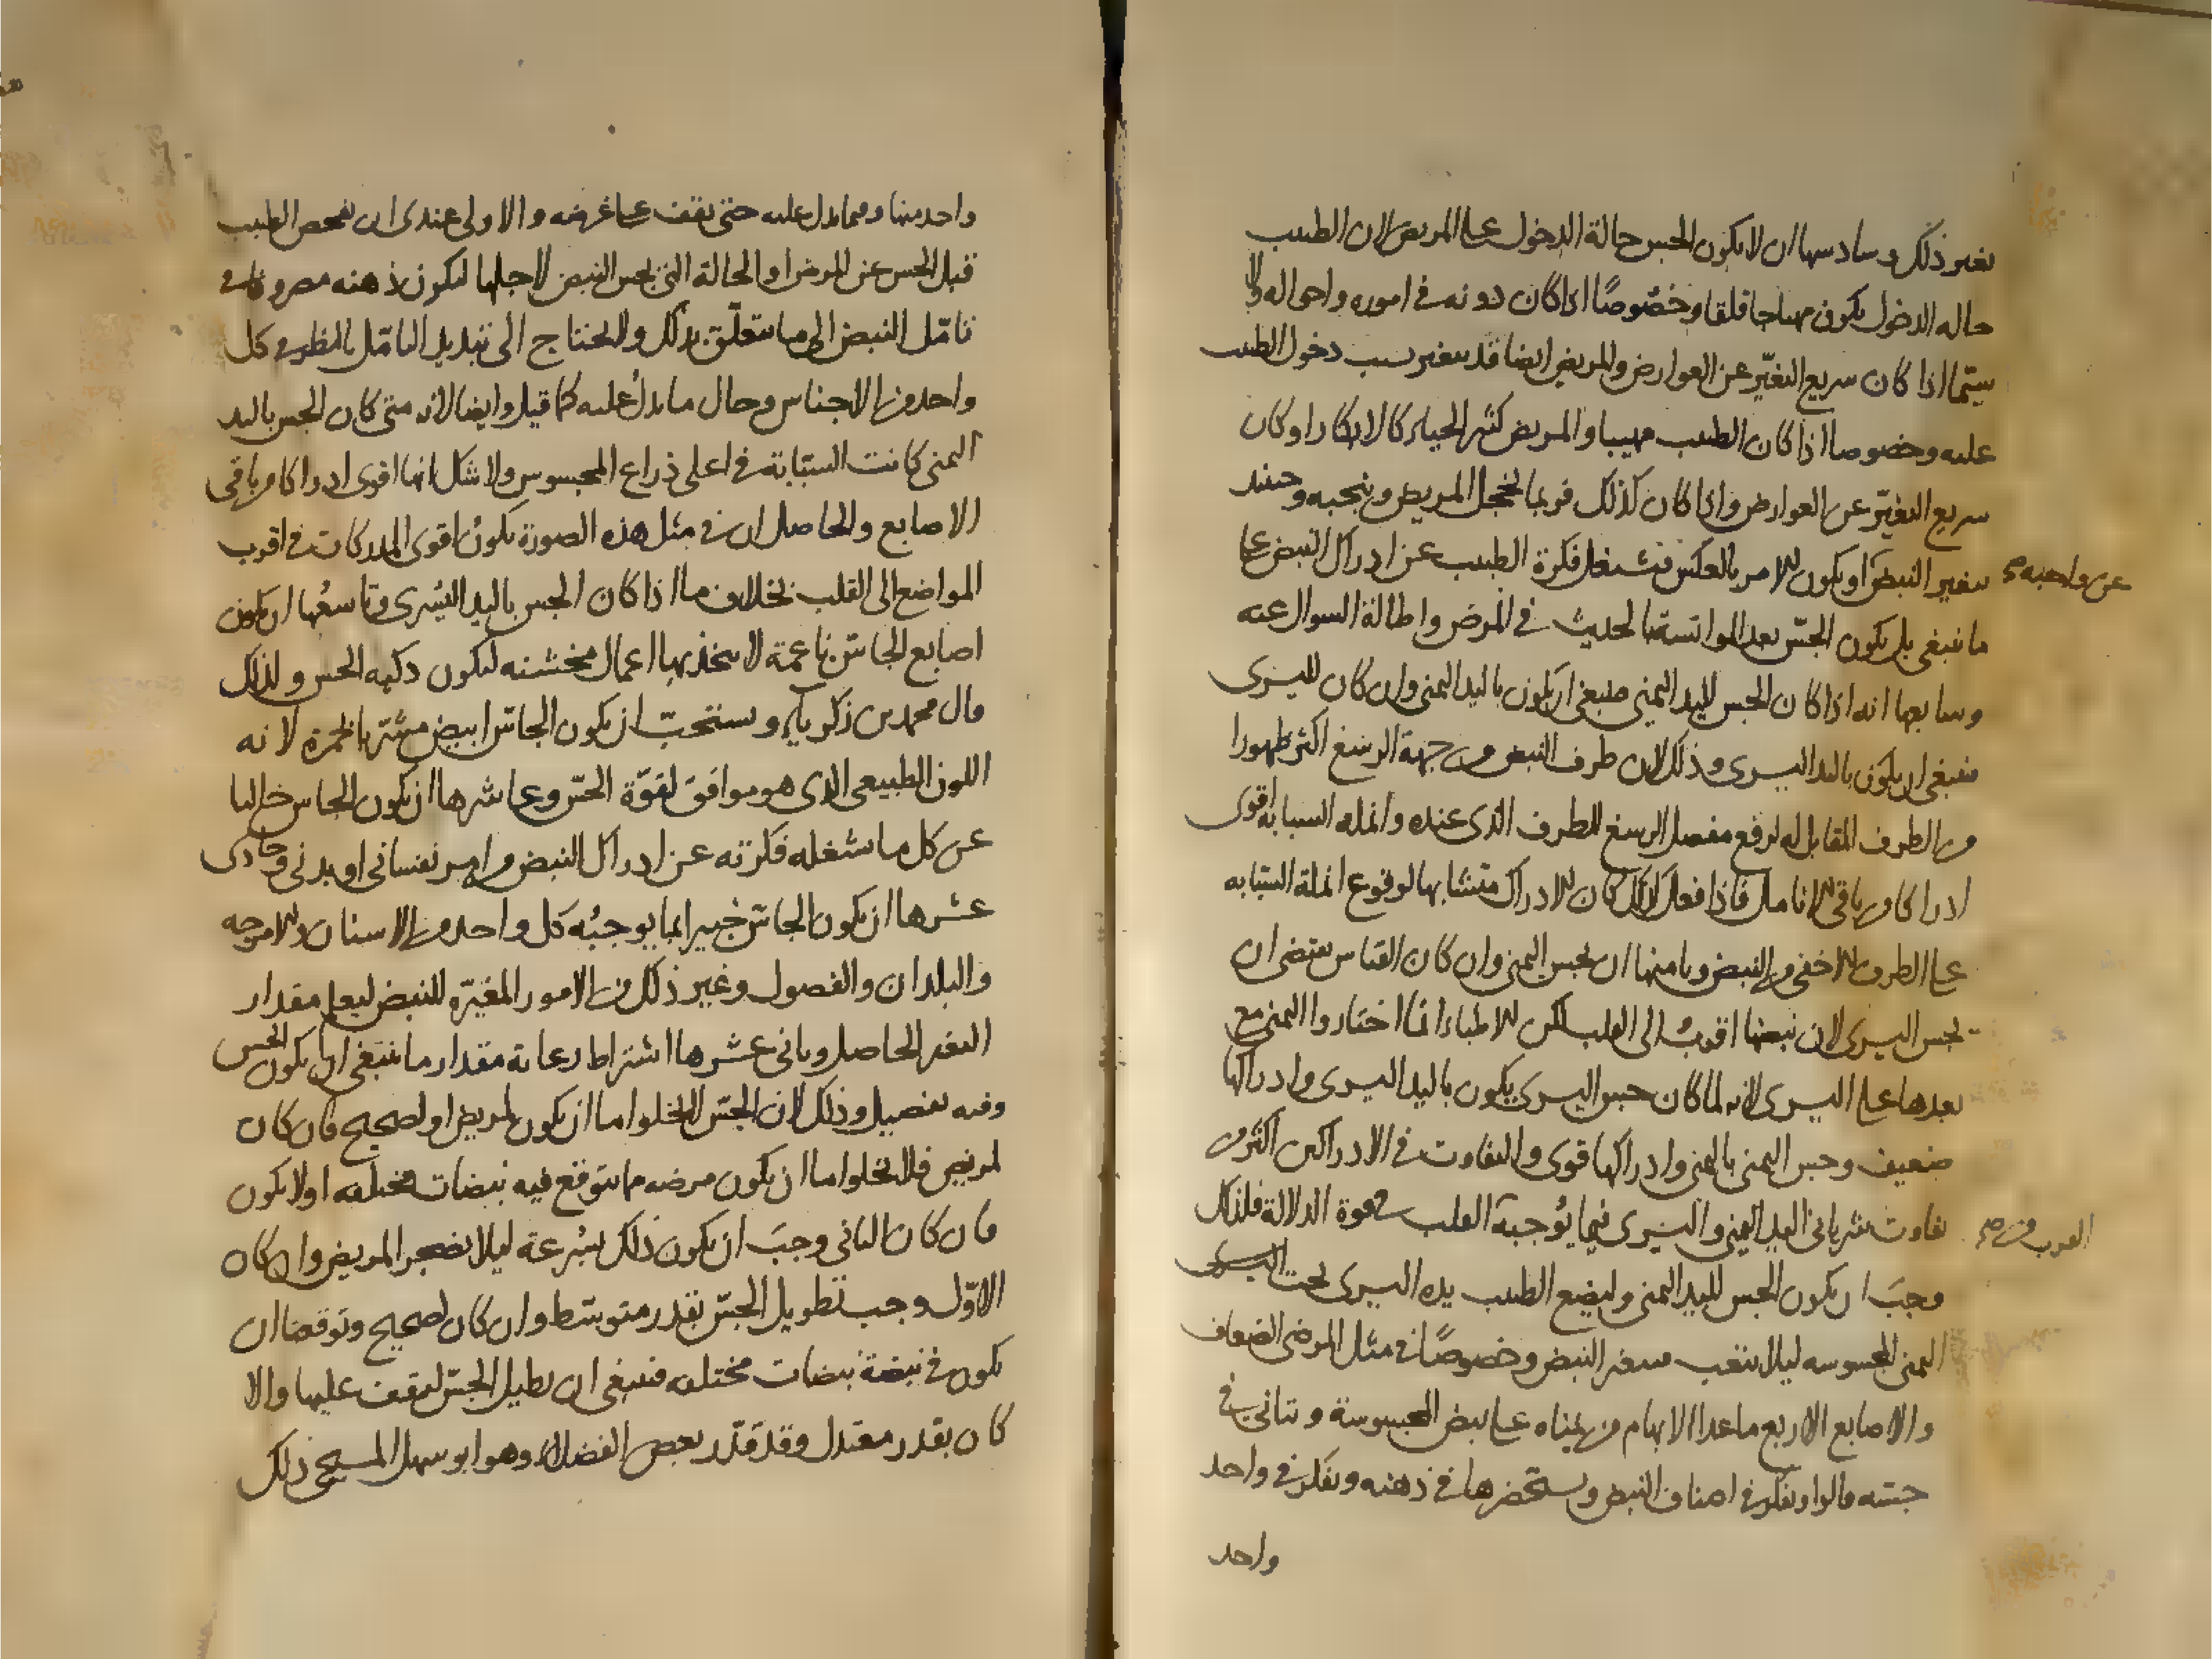 بغير ذلك وسادسها ان لا يكون الجس حالة الدخول على المريض لان الطبيب
حاله الدخول يكون مهتاجا قلقا وخصوصًا اذا كان دونه في اموره واحواله ولا
سيّما اذا كان سريع التغيّر عن العوارض والمريض ايضا قد يتغير بسبب دخول الطبيب
عليه وخصوصا اذا كان الطبيب مهيبا والمريض كثير الحياء كالابكار او كان
سريع التغيّر عن العوارض واذا كان كذلك فربما يخجل المريض وحينئذ
يتغير النبض او يكون الامر بالعكس فيشتغل فكرة الطبيب عن ادراك النبض على
عن واجبه صح
ما ينبغي بل يكون الجسّ بعد الموانسة بالحديث في المرض واطالة السوال عنه
وسابعها انه اذا كان الجس لليد اليمنى فينبغي ان يكون باليد اليمنى وان كان لليسرى
فينبغي ان يكون باليد اليسرى وذلك لان طرف النبض من جهة الرسغ اكثر ظهورا
من الطرف المقابل له لرفع مفصل الرسغ للطرف الذي عنده وانملة السبابة اقوى
ادراكا من باقي الانامل فاذا فعل كذلك كان الادراك متشابها لوقوع انملة السبّابه
على الطرف الاخفى من النبض وثامنها ان يجس اليمنى وان كان القياس يقتضى ان
يجس اليسرى لان نبضها اقرب الى القلب لكن الاطباء انما اختاروا اليمنى مع
بعدها على اليسرى لانه لما كان جس اليسرى يكون باليد اليسرى وادراكها
ضعيف وجس اليمنى باليمنى وادراكها قوى والتفاوت في الادراكين اكثر من
تفاوت شرياني اليد اليمنى واليسرى فيما يُوجبه القلب بقوة الدلالة فلذلك
القرب من صح
وجبَ ان يكون الجس لليد اليمنى وليضع الطبيب يده اليسرى تحت اليسرى
اليمنى المجسوسه ليلا يتعب فيتغير النبض وخصوصًا في مثل المرضى الضعاف
والاصابع الاربع ما عدا الابهام من يمناه على نبض المجسوسة ويتانى في
جسّه قالوا ويفكر في اصناف النبض ويستحضرها في ذهنه ويفكر في واحد
واحد
واحد منها ومما يدل عليه حتى يقف على غرضه والاولى عندي ان يفحص الطبيب
قبل الجس عن المرض او الحالة التي يجس النبض لاجلها ليكون ذهنه مصروفا في
تامّل النبض الى ما يتعلّق بذلك ولا يحتاج الى تبديل التامّل بالنظر في كل
واحد من الاجناس وحال ما يدلُ عليه كما قيل وايضا لانه متى كان الجس باليد
اليمنى كانت السبّابة في اعلى ذراع المجسوس ولا شك انها اقوى ادراكا من باقي
الاصابع والحاصل ان في مثل هذه الصورة يكون اقوى المدركات في اقرب
المواضع الى القلب بخلاف ما اذا كان الجس باليد اليُسرى وتاسعُها ان يكون
اصابع الجاسّ ناعمة لا يتخذ بها اعمال مخشنه ليكون ذكيه الحس ولذلك
قال محمد بن زكريا ويستحبّ ان يكون الجاسّ ابيض مشربا بحمرة لانه
اللون الطبيعي الذي هو موافق لقوّة الحسّ وعاشرها ان يكون الجاس خاليا
عن كل ما يشغله فكرته عن ادراك النبض من امر نفساني او بدني وحادى
عشرها ان يكون الجاسّ خبيرا بما يوجبُه كل واحد من الاسنان والامزجه
والبلدان والفصول وغير ذلك من الامور المغيّره للنبض ليعلم مقدار
التغير الحاصل وثانى عشرها اشتراط رعاية مقدار ما ينبغي ان يكون الجس
وفيه تفصيل وذلك لان الجسّ لا يخلو اما ان يكون لمريض او لصحيح فان كان
لمريض فلا يخلوا اما ان يكون مرضه مما يتوقع فيه نبضات مختلفه اولا يكون
فان كان الثاني وجبَ ان يكون ذلك بسُرعة ليلا يضجر المريض وان كان
الاوّل وجب تطويل الجسّ بقدر متوسّط وان كان لصحيح وتوقعنا ان
يكون في نبضة نبضات مختلفه فينبغي ان يطيل الجسّ ليقف عليها والا
كان بقدر معتدل وقد قدّر بعض الفضلاء وهو ابو سهل المسيحي ذلك